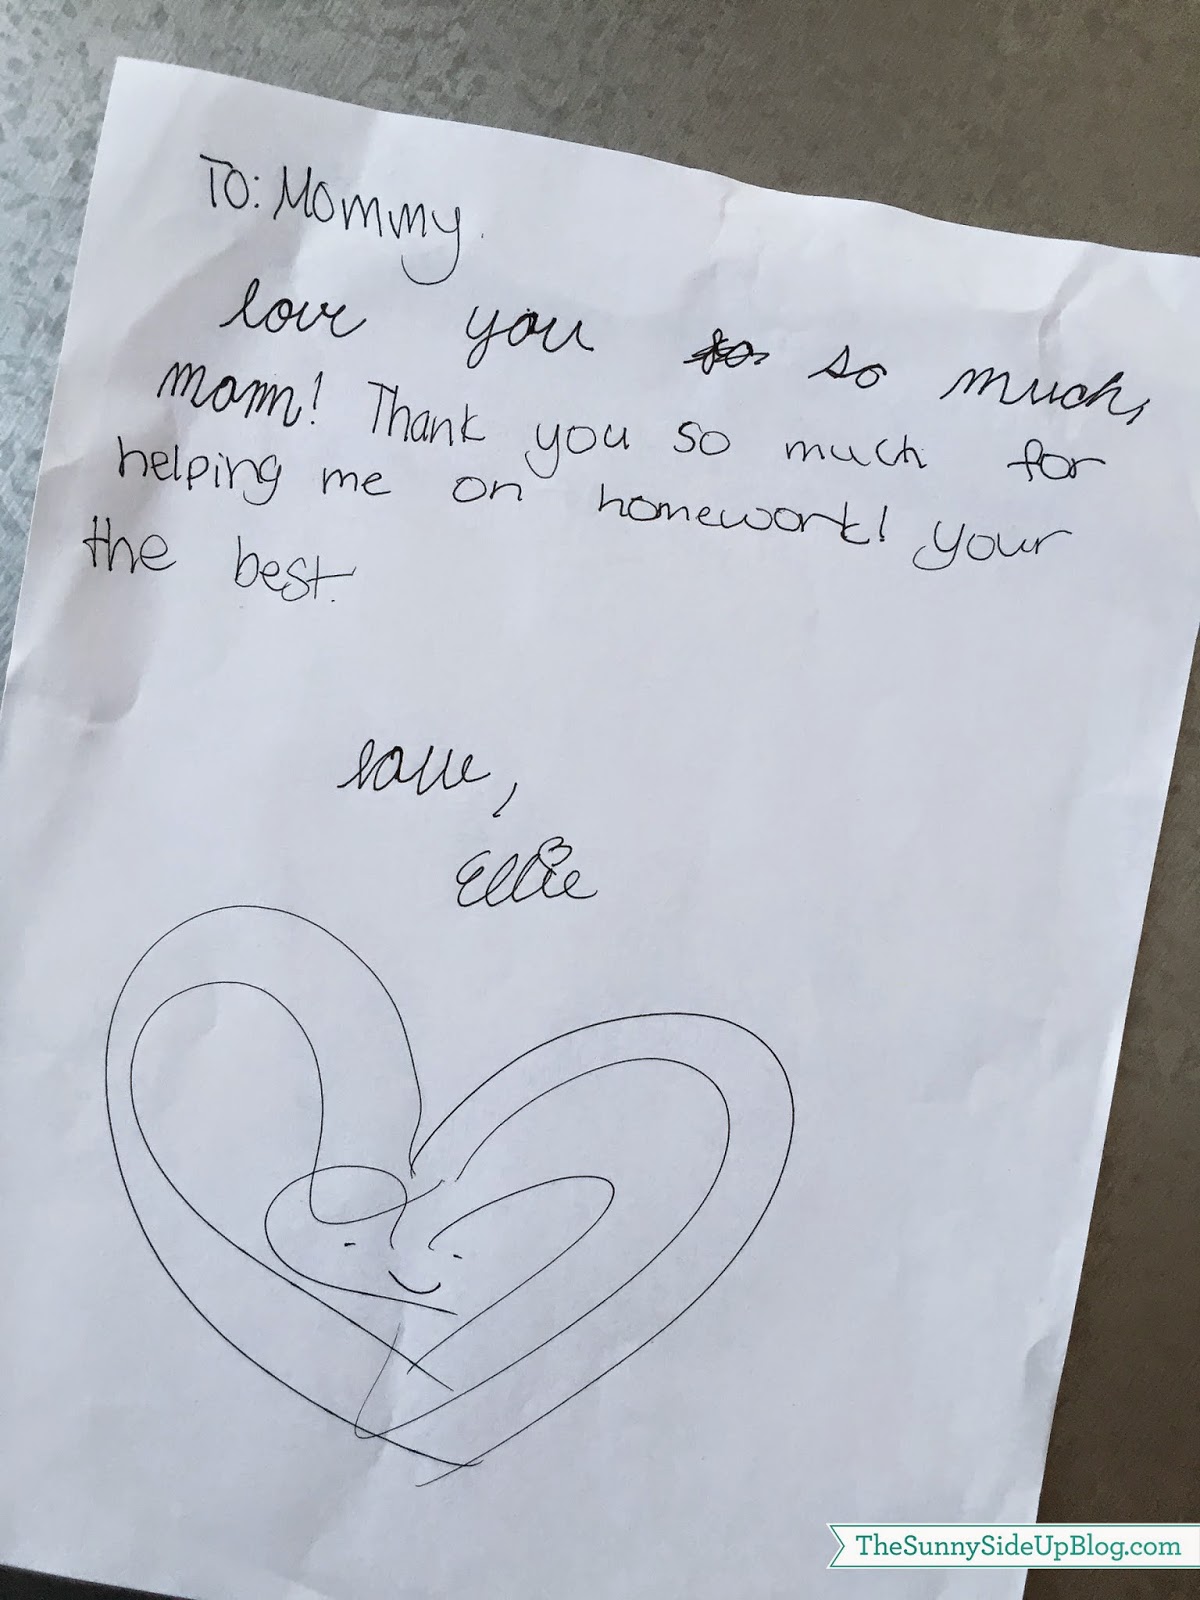 To: Mommy.
love you so so much,
mom! Thank you so much for
helping me on homework! your
the best.
love,
Ellie
TheSunnySideUpBlog.com